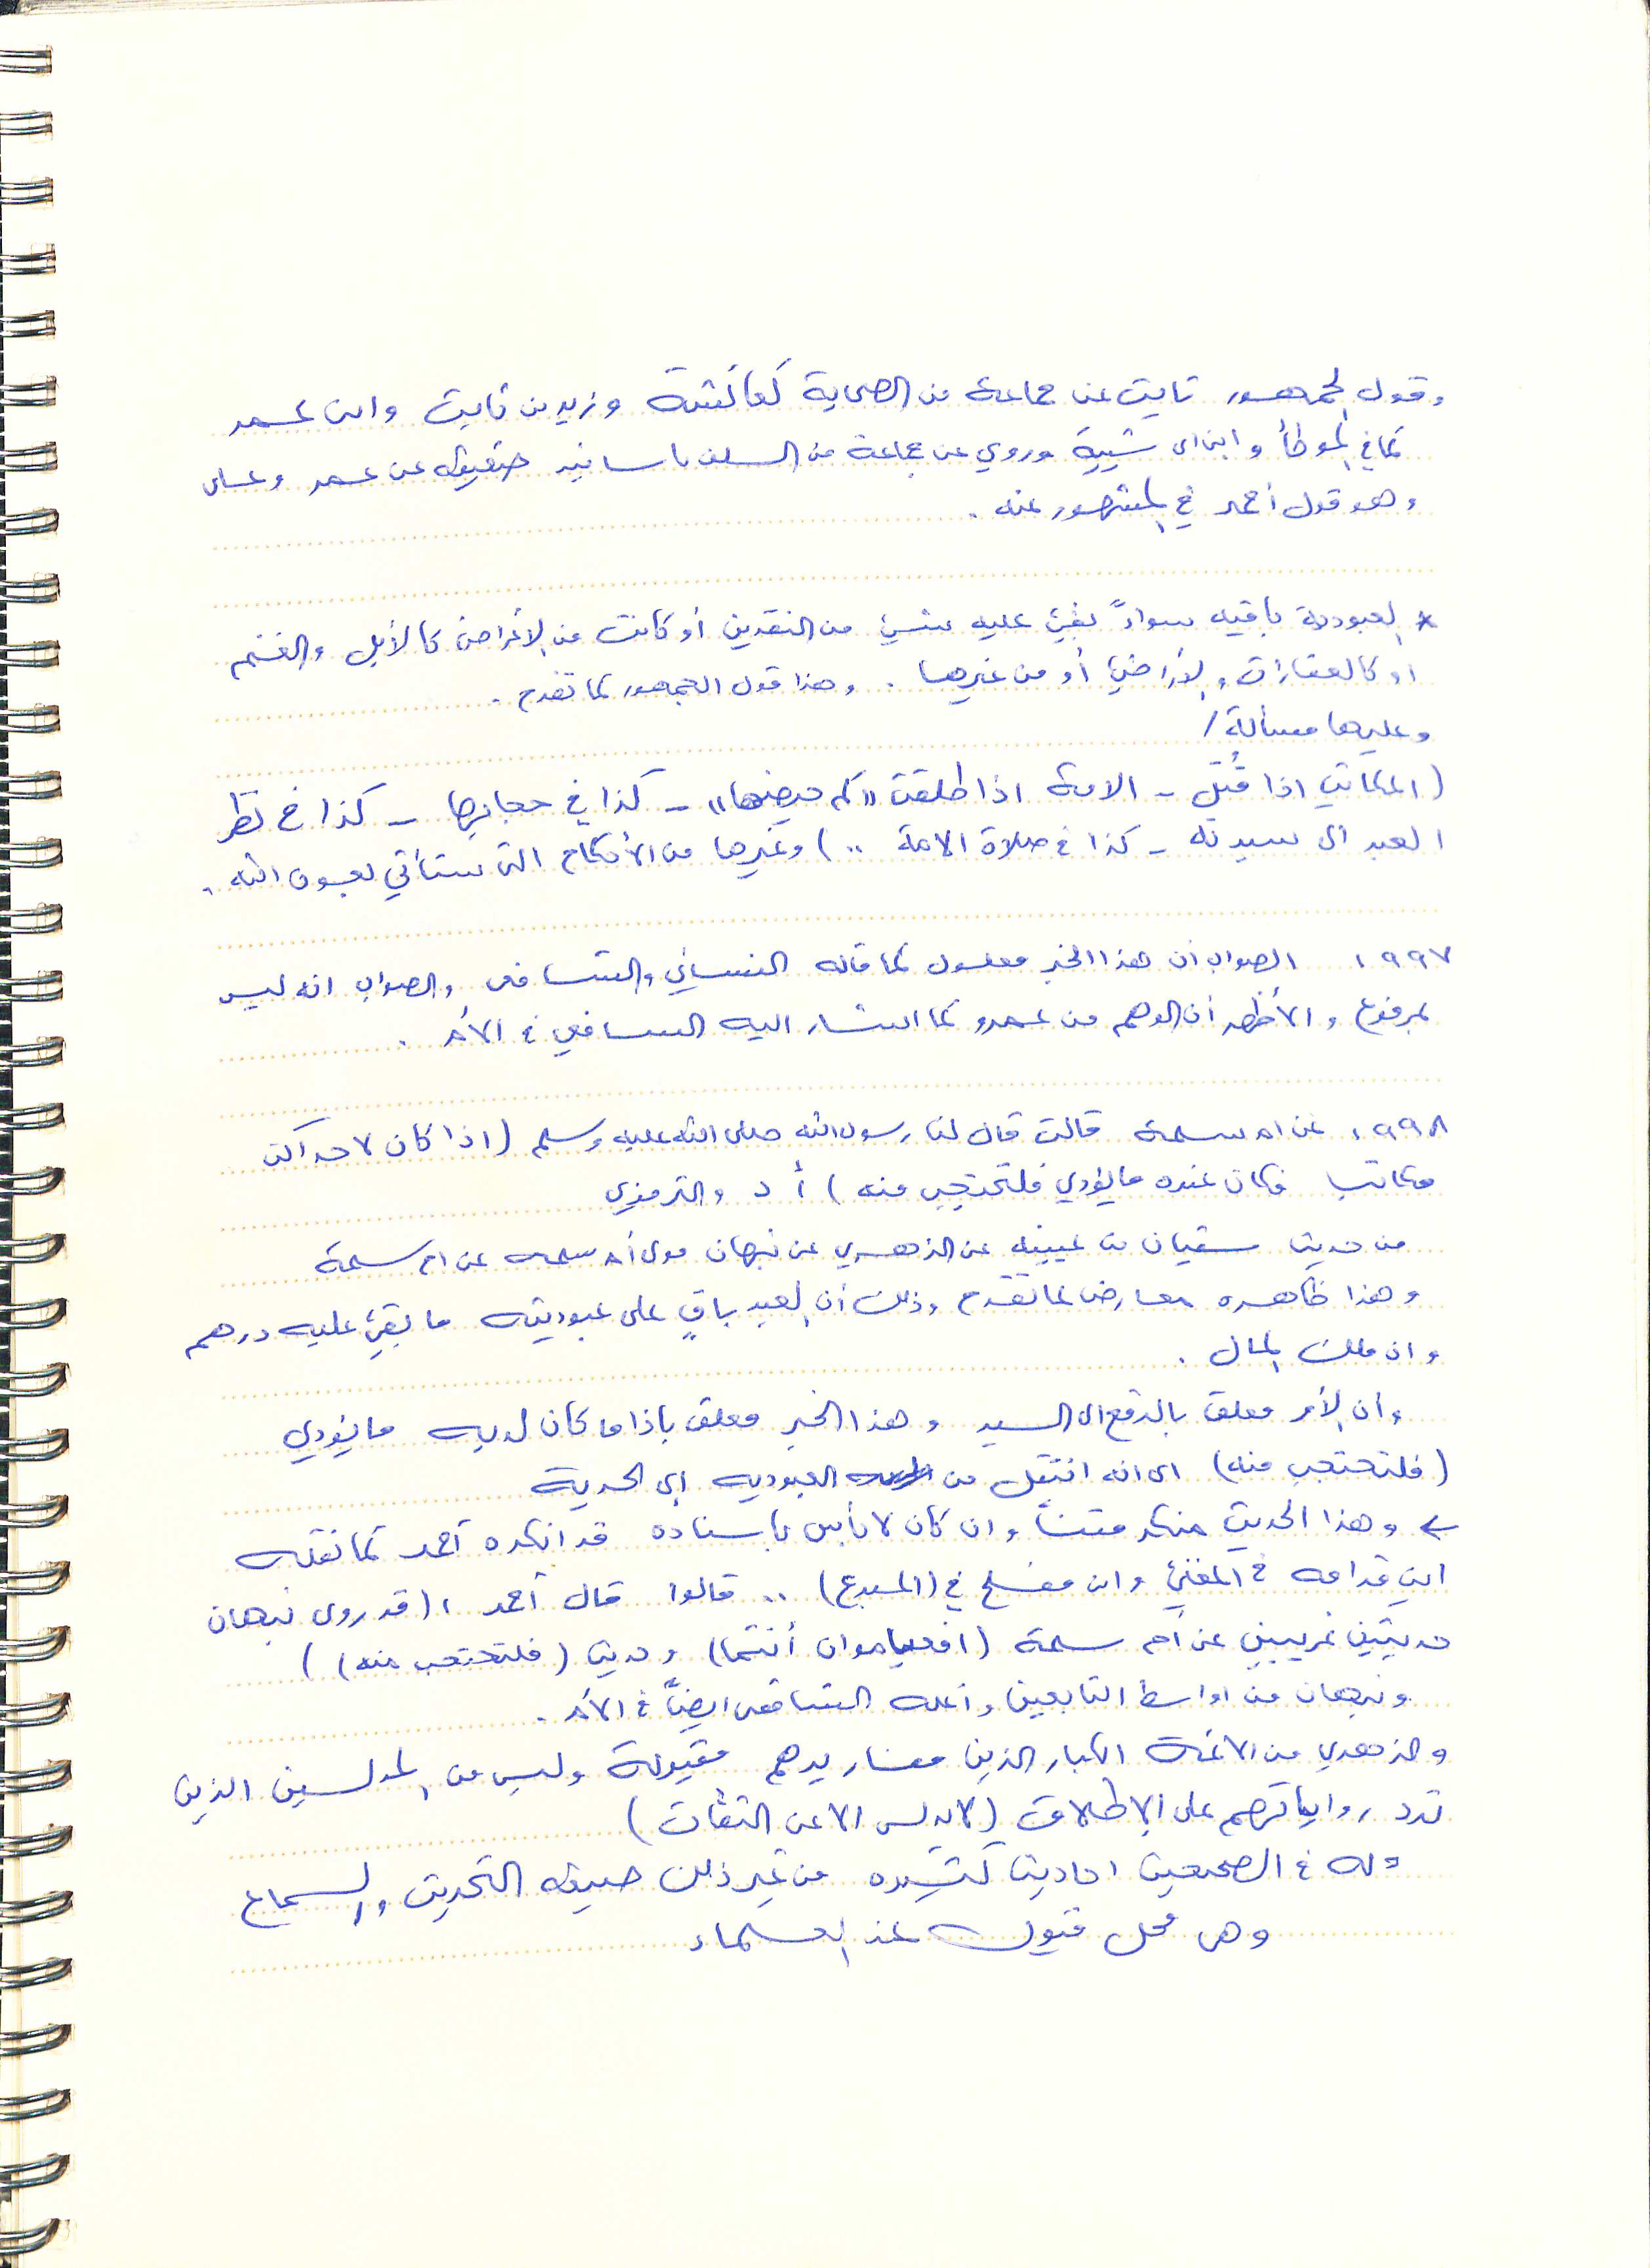 وقول الجمهور ثابت عن جماعة من الصحابة كعائشة وزيد بن ثابت وابن عمر
كما في الموطأ وابن ابي شيبة وروي عن جماعة من السلف باسانيد ضعيفه عن عمر وعلي
وهو قول أحمد في المشهور عنه .
* العبودية باقيه سواءً بقيَ عليه شيئ من النقدين أو كانت من الاعراض كالأبل والغنم
او كالعقارات والأراضي أو من غيرها . وهذا قول الجمهور كما تقدم .
وعليها مسألة /
( المكاتب اذا قُتِل - الامة اذا طلقت ((كم حيضها)) - كذا في حجابها - كذا في نظر
العبد الى سيدته - كذا في صلاة الامة .. ) وغيرها من الأحكام التي ستأتي بعون الله .
١٩٩٧ الصواب ان هذا الخبر معلول كما قاله النسائي والشافعي والصواب انه ليس
بمرفوع والأظهر أن الوهم من عمرو كما اشار اليه الشافعي في الأم .
١٩٩٨ عن ام سلمة قالت قال لنا رسول الله صلى الله عليه وسلم ( اذا كان لاحداكن
مكاتب فكان عنده ما يؤدي فلتحتجب منه ) أ د والترمذي
من حديث سفيان بن عيينه عن الزهري عن نبهان مولى أم سلمه عن ام سلمة
وهذا ظاهره معارض لما تقدم وذلك أن العبد باقٍ على عبوديته ما بقي عليه درهم
وان ملك المال .
وأن الأمر معلق بالدفع الى السيد وهذا الخبر معلق باذا ما كان لديه ما يؤدي
( فلتحتجب منه ) اي انه انتقل من العبوديه الى الحرية
← وهذا الحديث منكر متناً وان كان لا بأس باسناده قد انكره أحمد كما نقله
ابن قدامه في المغني وابن مفلح في (المبدع) .. قالوا قال أحمد ، (قد روى نبهان
حديثين غريبين عن أم سلمة ( افعمياوان أنتما ) وحديث ( فلتحتجب منه ) )
ونبهان من اواسط التابعين وأعله الشافعي ايضاً في الأم .
والزهري من الائمة الكبار الذين معنا يدهم مقبولة وليس من المدلسين الذين
ترد رواياتهم على الإطلاق ( لا يدلس الا عن الثقات )
وله في الصحيحين احاديث كثيره من غير ذلك صيغه التحديث والسماع
وهي محل قبول عند العلماء